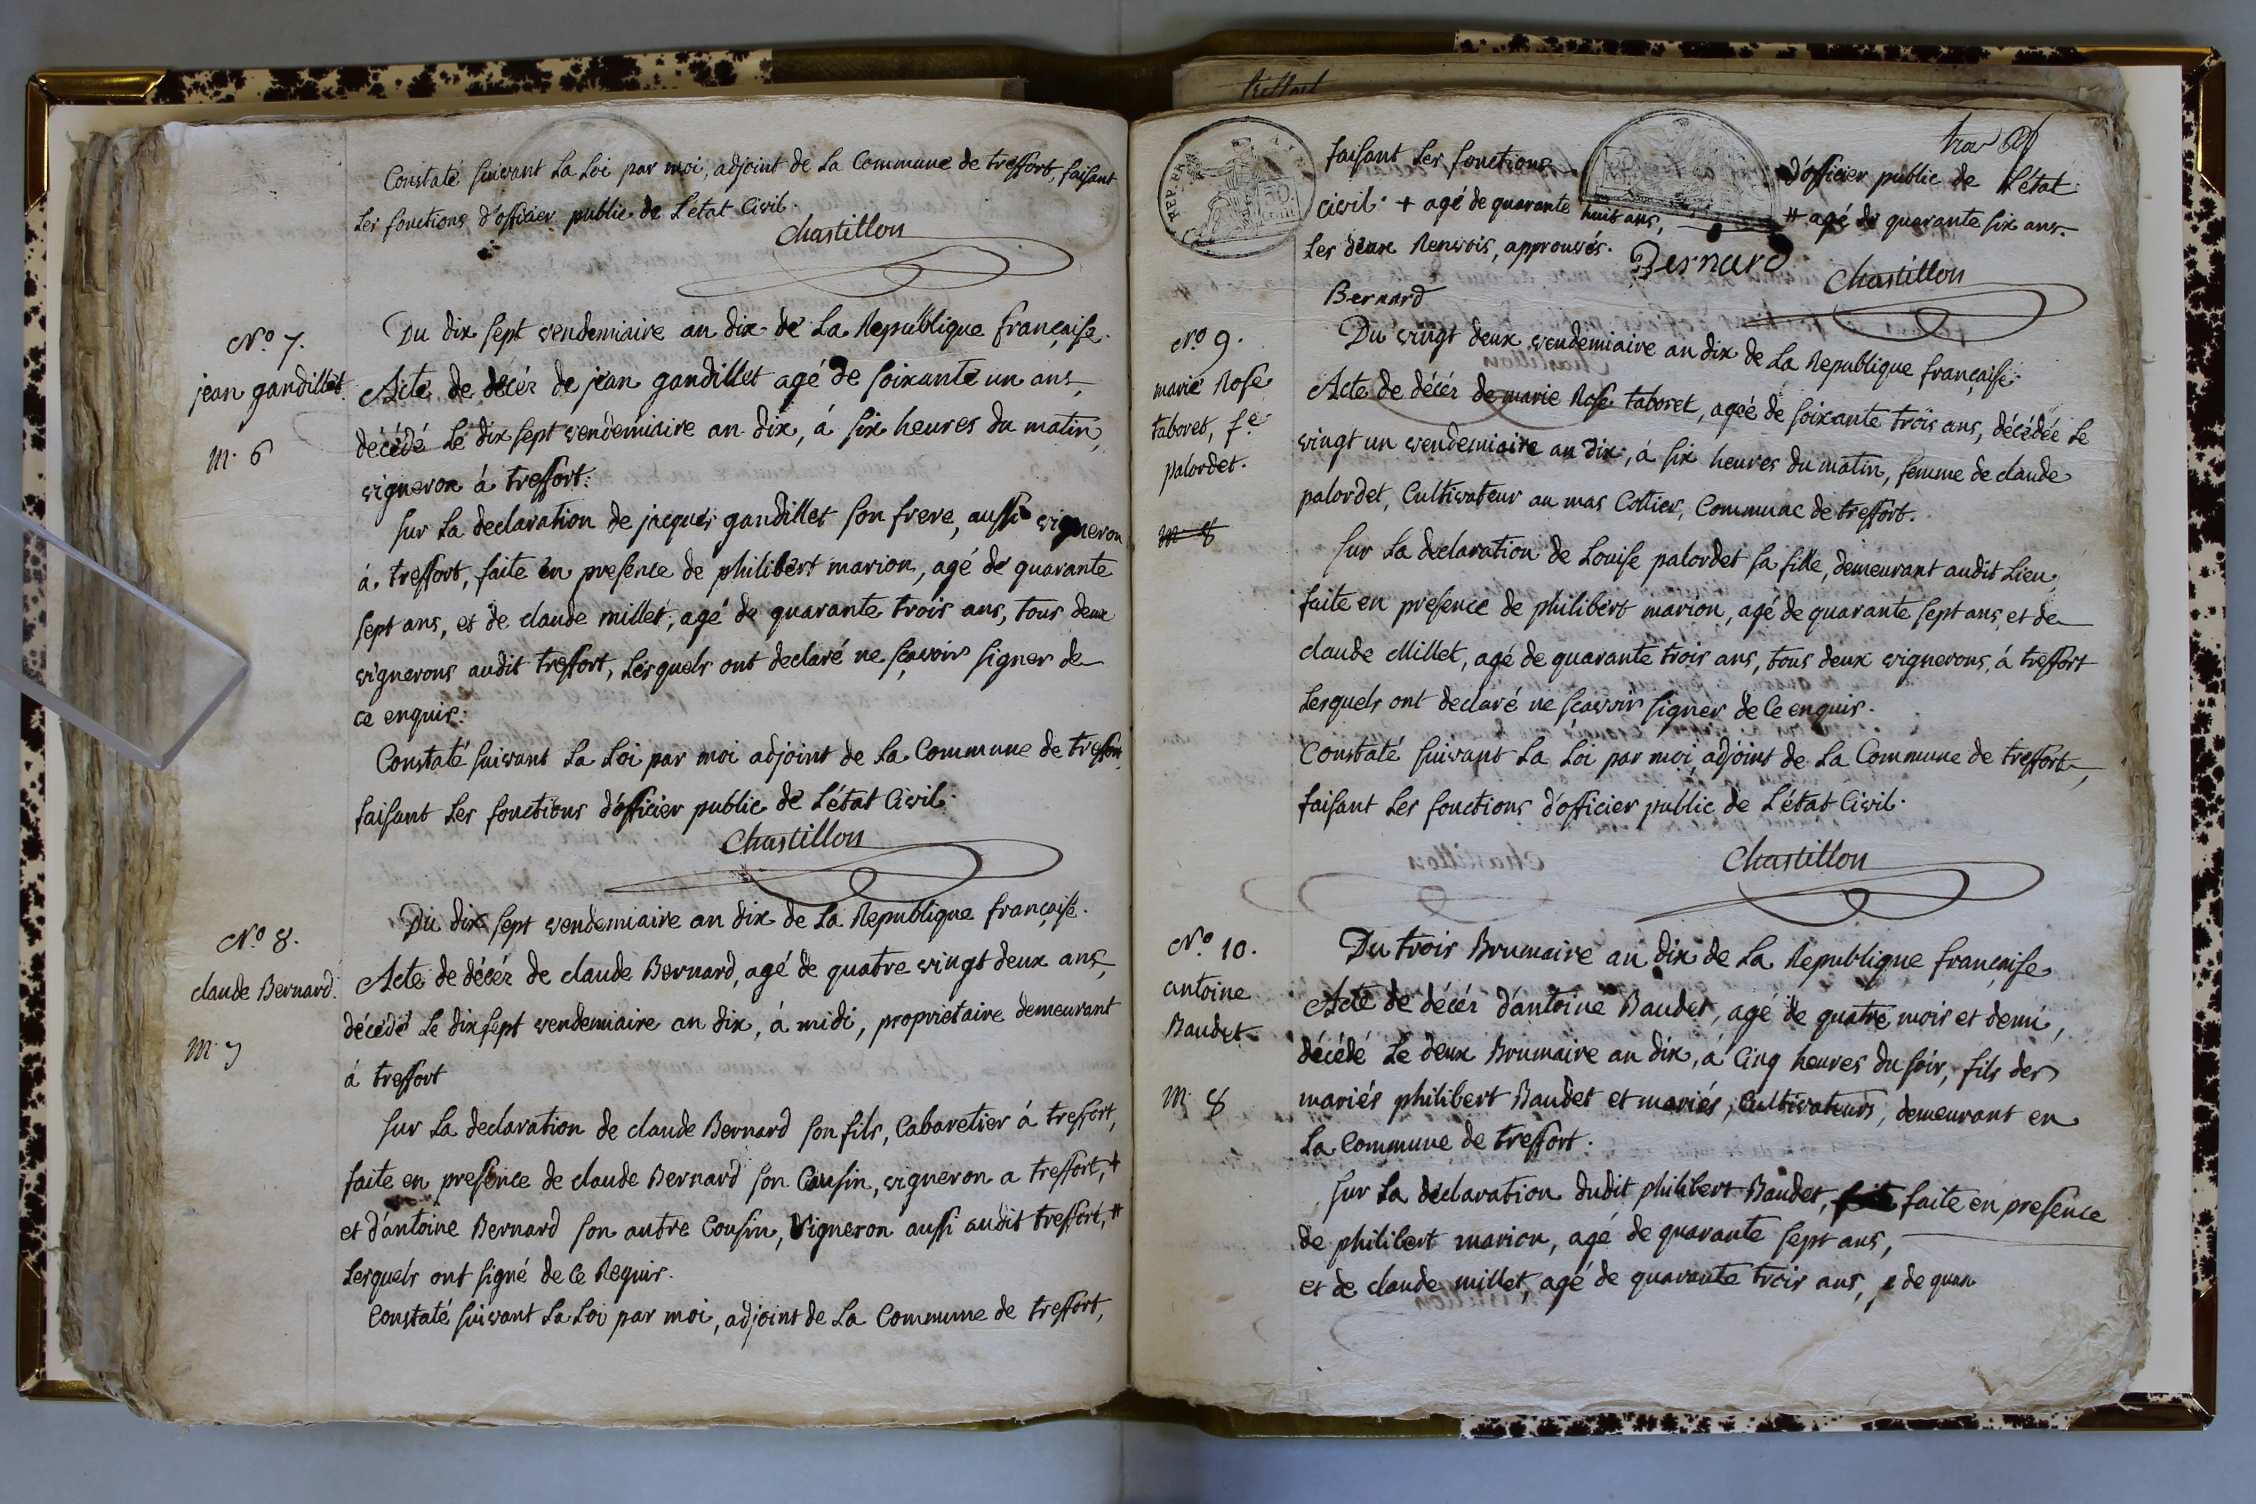 Constaté suivant La Loi par moi, adjoint de La Commune de treffort, faisant
Les fonctions d'officier public de L'état Civil.
Chastillon
N.º 7.
jean gandillet.
m. 6
Du dix sept vendemiaire an dix de La Republique française.
Acte de décér de jean gandillet agé de soixante un ans,
décédé Le dix sept vendemiaire an dix, á six heures du matin,
vigneron á treffort.
sur La declaration de jacques gandillet son frere, aussi vigneron
á treffort, faite en presence de philibert marion, agé de quarante
sept ans, et de claude millet, agé de quarante trois ans, tous deux
vignerons audit treffort, Lesquels ont declaré ne sçavoir signer de
ce enquis.
Constaté suivant La Loi par moi adjoint de La Commune de treffort,
faisant Les fonctions d'officier public de L'état Civil.
Chastillon
N.º 8.
claude Bernard.
m. 7
Du dix sept vendemiaire an dix de La Republique française.
Acte de décér de claude Bernard, agé de quatre vingt deux ans,
décédé Le dix sept vendemiaire an dix, á midi, proprietaire demeurant
á treffort
sur La declaration de claude Bernard son fils, Cabaretier á treffort,
faite en presence de claude Bernard son Cousin, vigneron a treffort, +
et d'antoine Bernard son autre Cousin, Vigneron aussi audit treffort, #
Lesquels ont signé de ce Requis.
Constaté suivant La Loi par moi, adjoint de La Commune de treffort,
treffort
REP. FRA
faisant Les fonctions d'officier public de L'état
civil. + agé de quarante huit ans, # agé de quarante six ans.
Les deux Renvois, approuvés. Bernard
Chastillon
Bernard
N.º 9.
marie Rose
taboret, f.e
palordet.
m 8
Du vingt deux vendemiaire an dix de La Republique française.
Acte de décér de marie Rose taboret, agée de soixante trois ans, décédée Le
vingt un vendemiaire an dix, á six heures du matin, femme de claude
palordet, Cultivateur au mas Cottier, Commune de treffort.
sur La declaration de Louise palordet sa fille, demeurant audit Lieu,
faite en presence de philibert marion, agé de quarante sept ans, et de
claude Millet, agé de quarante trois ans, tous deux vignerons, á treffort
Lesquels ont declaré ne sçavoir signer de Ce enquis.
Constaté suivant La Loi par moi, adjoint de La Commune de treffort,
faisant Les fonctions d'officier public de L'état Civil.
Chastillon
N.º 10.
antoine
Baudet
m. 8
Du trois Brumaire an dix de La Republique française
Acte de décér d'antoine Baudet, agé de quatre mois et demi,
décédé Le deux Brumaire an dix, á Cinq heures du soir, fils des
mariés philibert Baudet et mariés, Cultivateurs, demeurant en
La Commune de treffort.
sur La declaration dudit philibert Baudet, faite en presence
de philibert marion, agé de quarante sept ans,
et de claude millet, agé de quarante trois ans, e de quar